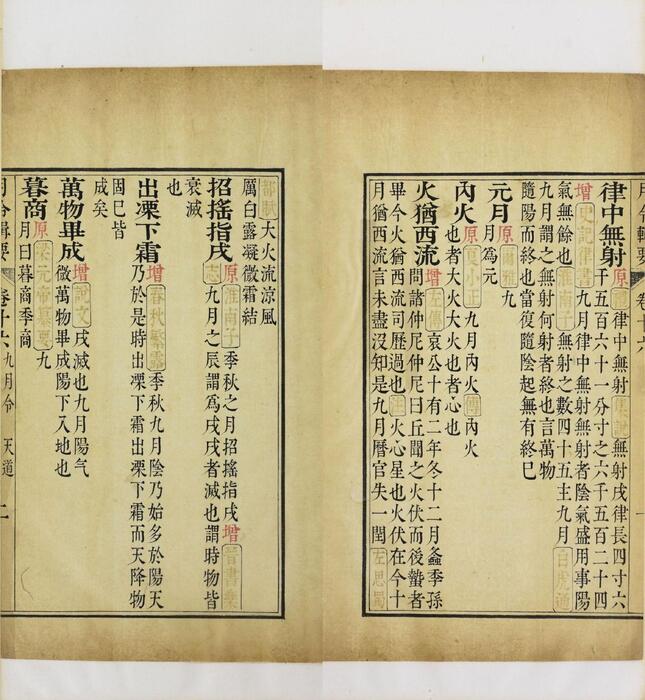 律中無射原禮律中無射集說無射戌律長四寸六
千五百六十一分寸之六千五百二十四
增史記律書九月律中無射無射者陰氣盛用事陽
氣無餘也淮南子無射之數四十五主九月白虎通
九月謂之無射何射者終也言萬物
隨陽而終也當復隨陰起無有終已
元月原爾雅九
月為元
內火原夏小正九月內火傳內火
也者大火大火也者心也
火猶西流增左傳哀公十有二年冬十二月螽季孫
問諸仲尼仲尼曰丘聞之火伏而後蟄者
畢今火猶西流司歷過也注火心星也火伏在今十
月猶西流言未盡沒知是九月曆官失一閏左思蜀
都賦大火流涼風
厲白露凝微霜結
招搖指戌原淮南子季秋之月招搖指戌增晉書樂
志九月之辰謂為戌戌者滅也謂時物皆
衰滅
也
出凜下霜增春秋繁露季秋九月陰乃始多於陽天
乃於是時出凜下霜出凜下霜而天降物
固已皆
成矣
萬物畢成增說文戌滅也九月陽气
微萬物畢成陽下入地也
暮商原梁元帝纂要九
月曰暮商季商
月令輯要 卷十六 九月令 天道 二